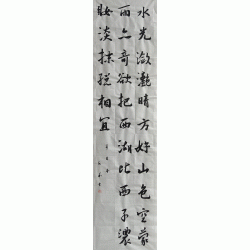 水光潋滟晴方好山色空蒙
雨亦奇欲把西湖比西子濃
妝淡抹總相宜